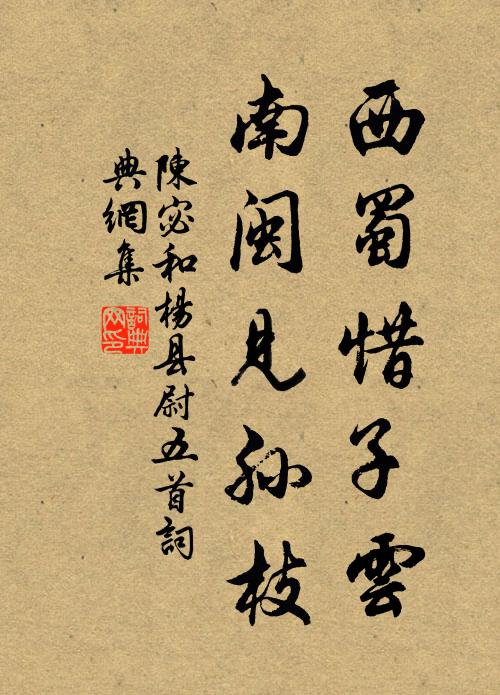 西蜀惜子雲
南閩見孙枝
陳宓和楊县尉五首詞
典網集
詞典网印